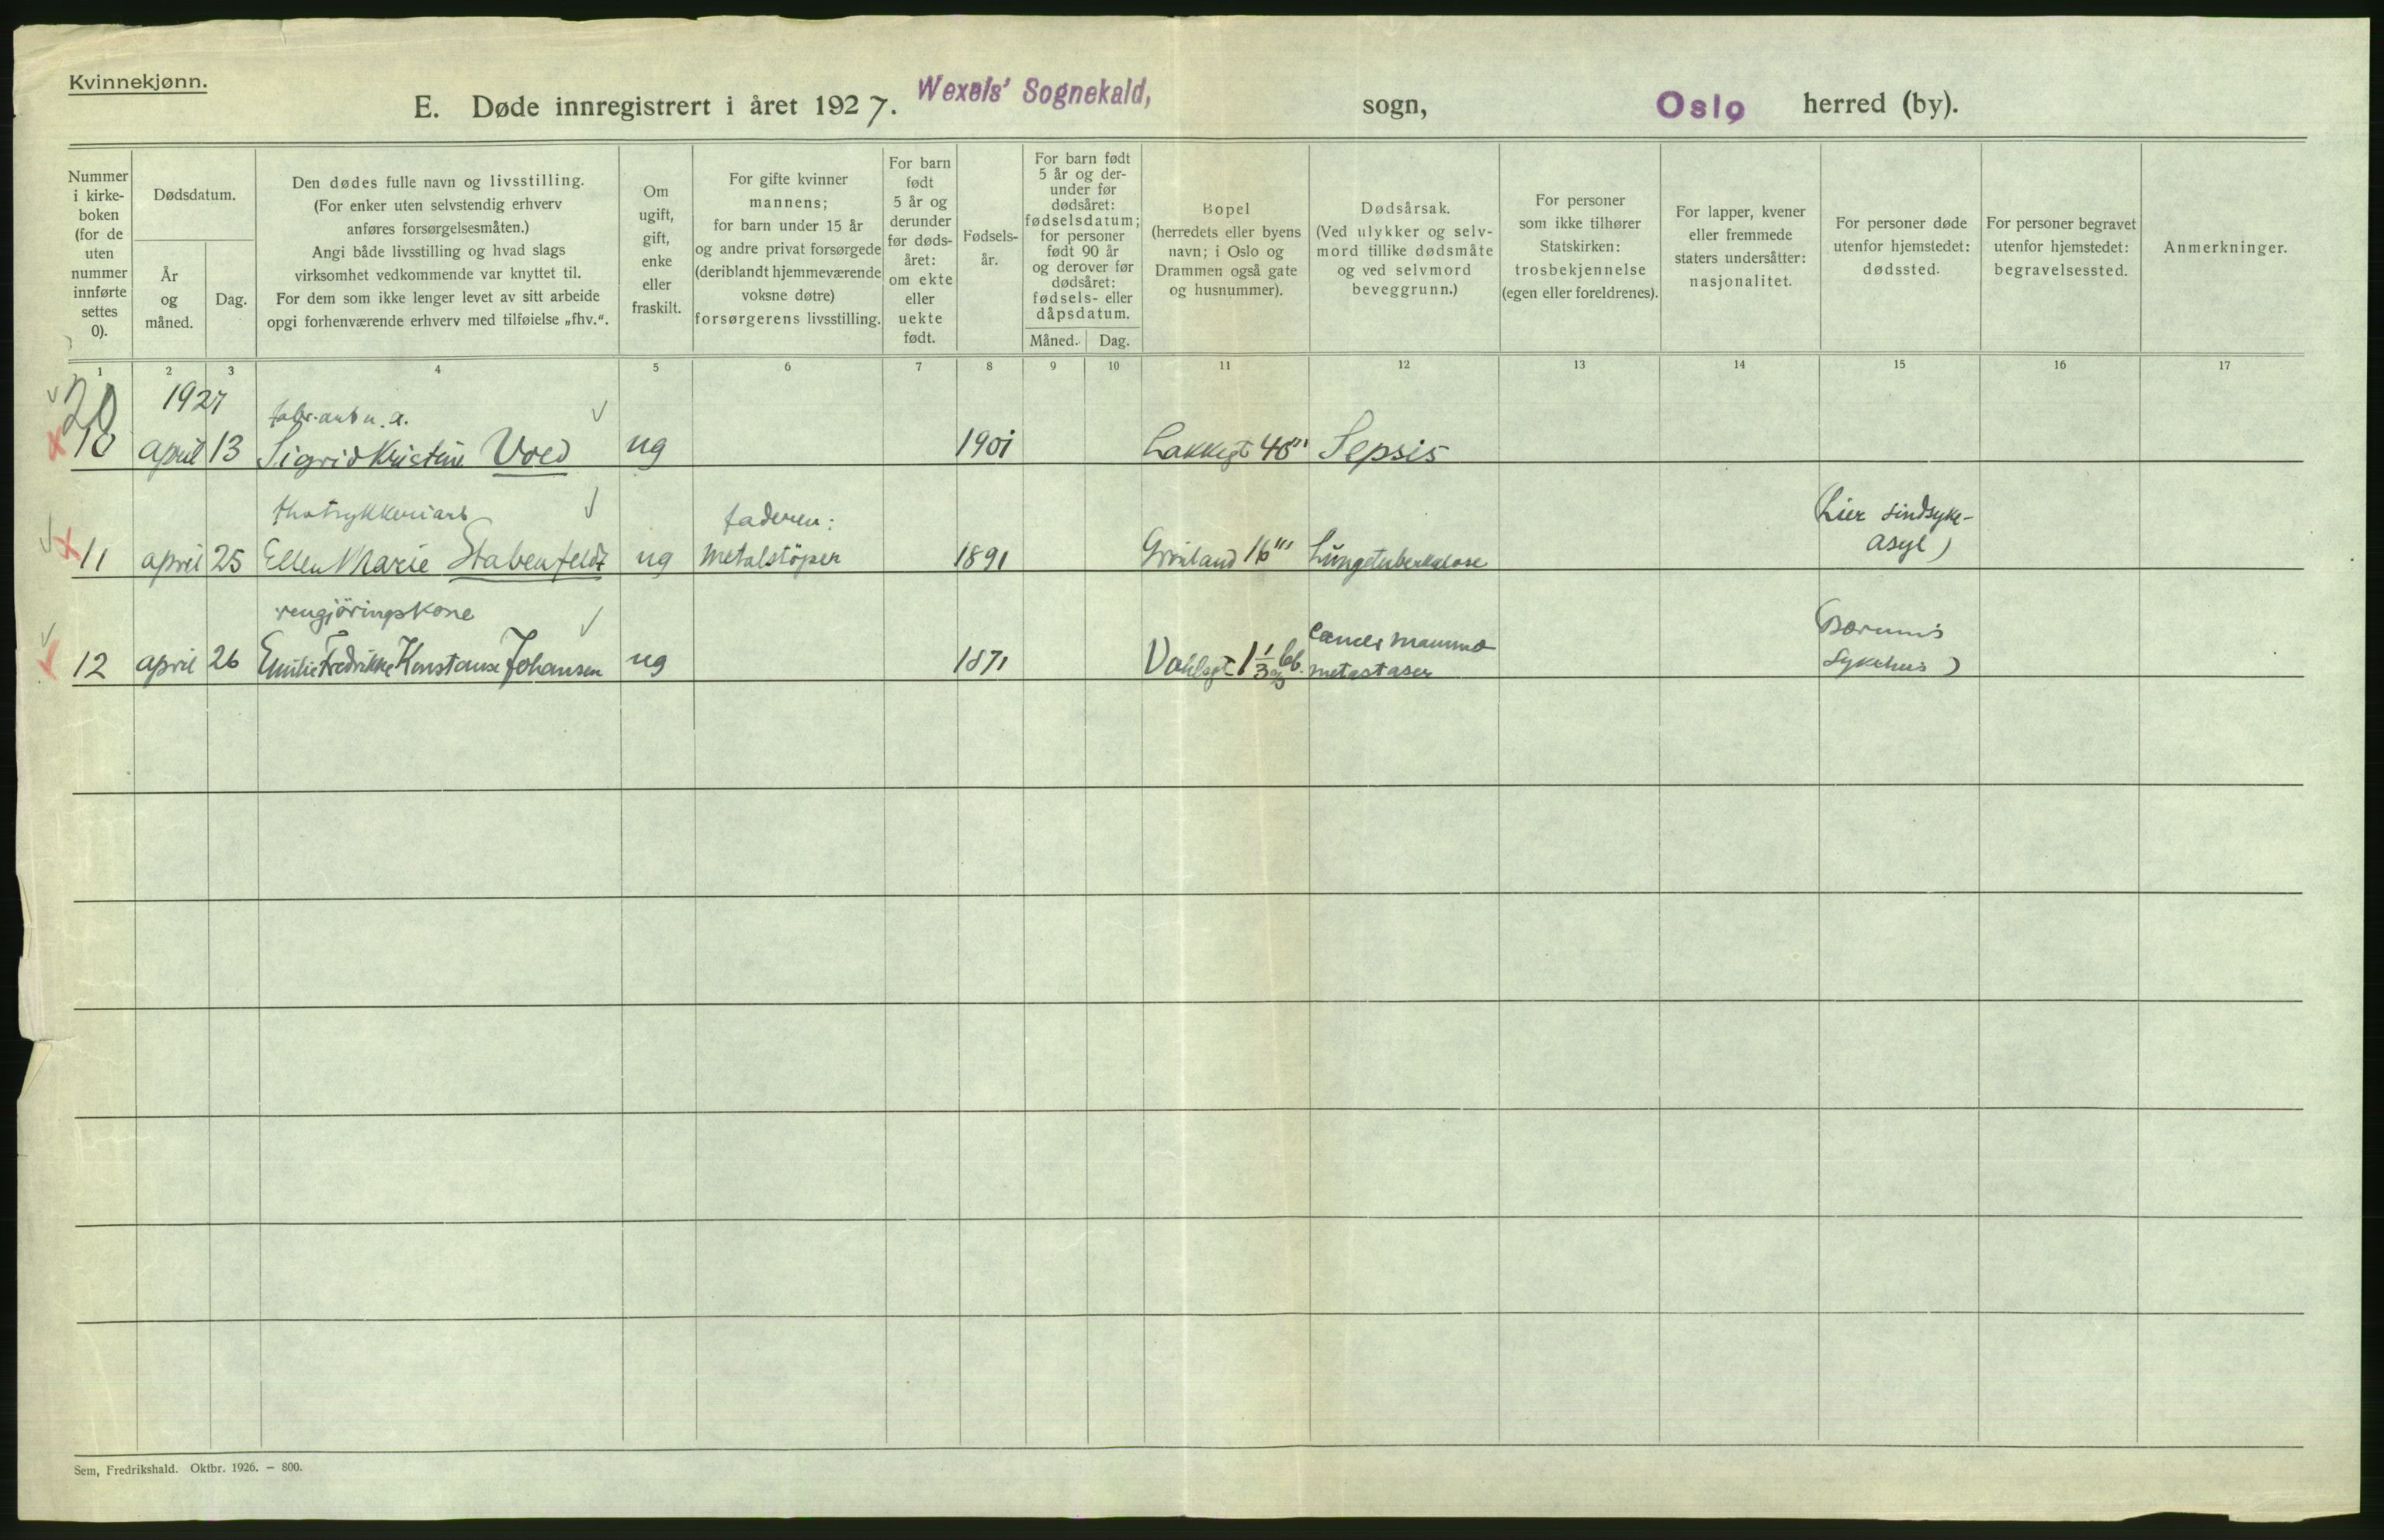 Kvinnekjønn.
E. Døde innregistrert i året 1927. Wexels' Sognekald, sogn, Oslo herred (by).
Nummer i kirke-boken (for de uten nummer innførte settes 0).
Dødsdatum.
År og måned.
Dag.
Den dødes fulle navn og livsstilling.
(For enker uten selvstendig erhverv
anføres forsørgelsesmåten.)
Angi både livsstilling og hvad slags
virksomhet vedkommende var knyttet til.
For dem som ikke lenger levet av sitt arbeide
opgi forhenværende erhverv med tilføielse „fhv.“.
Om ugift, gift, enke eller fraskilt.
For gifte kvinner
mannens;
for barn under 15 år
og andre privat forsørgede
(deriblandt hjemmeværende
voksne døtre)
forsørgerens livsstilling.
For barn født 5 år og derunder før døds-året: om ekte eller uekte født.
Fødsels-år.
For barn født
5 år og der-
under før
dødsåret:
fødselsdatum;
for personer
født 90 år
og derover før
dødsåret:
fødsels- eller
dåpsdatum.
Måned. Dag.
Bopel
(herredets eller byens
navn; i Oslo og
Drammen også gate
og husnummer).
Dødsårsak.
(Ved ulykker og selv-
mord tillike dødsmåte
og ved selvmord
beveggrunn.)
For personer
som ikke tilhører
Statskirken:
trosbekjennelse
(egen eller foreldrenes).
For lapper, kvener
eller fremmede
staters undersåtter:
nasjonalitet.
For personer døde
utenfor hjemstedet:
dødssted.
For personer begravet
utenfor hjemstedet:
begravelsessted.
Anmerkninger.
1 2 3 4 5 6 7 8 9 10 11 12 13 14 15 16 17
20 1927
10 april 13 Sigrid Kristine ug 1901 Lakkegt Sepsis
faderen: (Lier sindsyke-
11 april 25 Ellen Marie Stabenfeldt ug metalstöper 1891 Grönland 16''' Lungetuberkulose asyl)
rengjöringskone cancer mamma (Bærums
12 april 26 Emilie Fredrikke Konstanse Johansen ug 1871 Vahlsgt metastaser sykehus)
Sem, Fredrikshald. Oktbr. 1926. – 800.